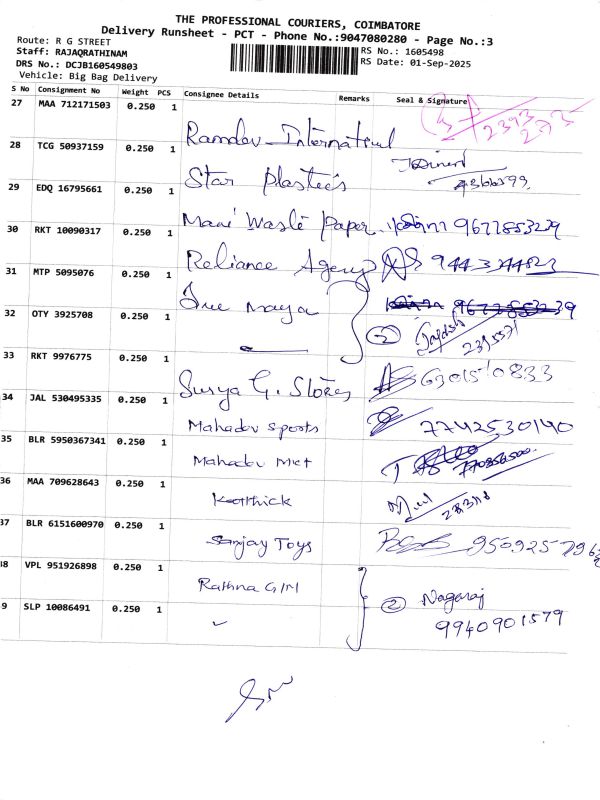 THE PROFESSIONAL COURIERS, COIMBATORE
Delivery Runsheet - PCT - Phone No.:9047080280 - Page No.:3
Route: R G STREET
Staff: RAJAQRATHINAM
RS No.: 1605498
DRS No.: DCJB160549803
RS Date: 01-Sep-2025
Vehicle: Big Bag Delivery
S No Consignment No Weight PCS Consignee Details Remarks Seal & Signature
27 MAA 712171503 0.250 1 Ramdev International
28 TCG 50937159 0.250 1 Star Plastics
29 EDQ 16795661 0.250 1 Mani Waste Paper 9677853239
30 RKT 10090317 0.250 1 Reliance Agency
31 MTP 5095076 0.250 1 Sree maya
32 OTY 3925708 0.250 1 2
33 RKT 9976775 0.250 1 Surya G. Stores 6301510833
34 JAL 530495335 0.250 1 Mahadev sports 7742530140
35 BLR 5950367341 0.250 1 Mahadev Met
36 MAA 709628643 0.250 1 Karthick
37 BLR 6151600970 0.250 1 Sanjay Toys
38 VPL 951926898 0.250 1 Rathna GIM 2 Nagaraj
9 SLP 10086491 0.250 1 9940901579